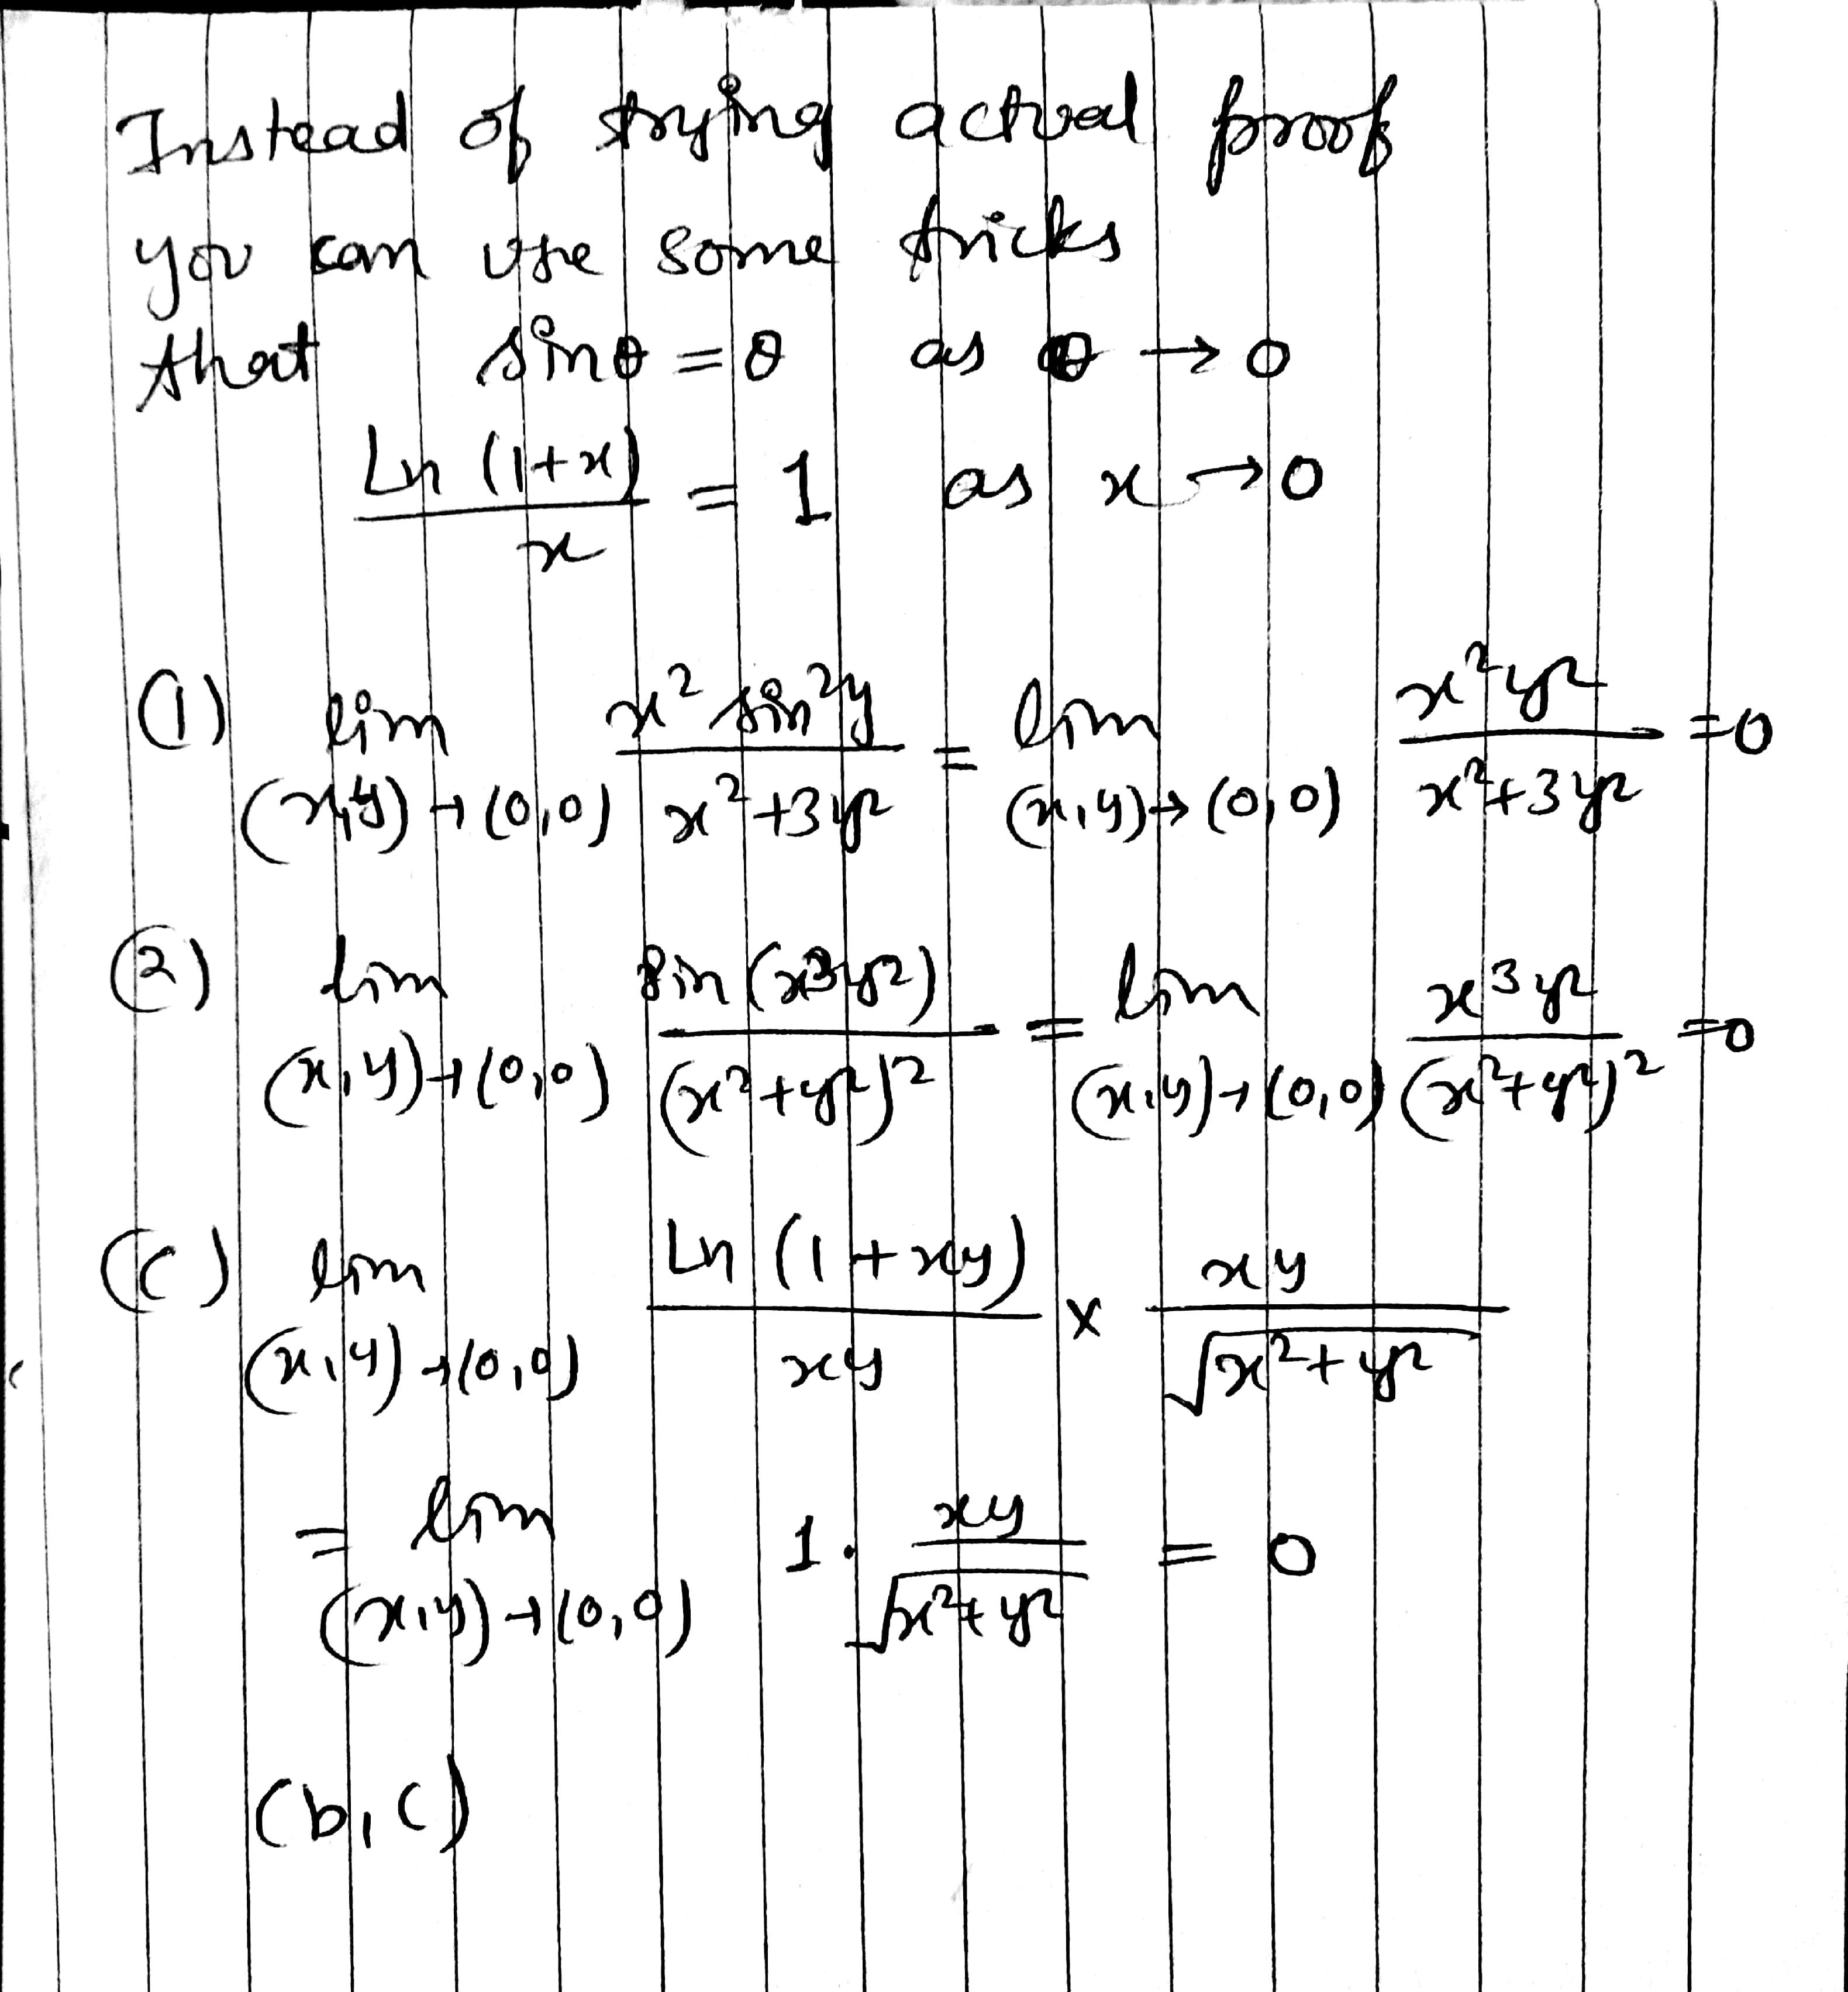 Instead of trying actual proof
you can use some tricks
that sinθ = θ as θ → 0
Ln (1+x) / x = 1 as x → 0
(1) lim (x,y) → (0,0) x² sin²y / x²+3y² = lim (x,y) → (0,0) x²y² / x²+3y² = 0
(2) lim (x,y) → (0,0) sin (x³y²) / (x²+y²)² = lim (x,y) → (0,0) x³y² / (x²+y²)² = 0
(c) lim (x,y) → (0,0) Ln (1+xy) / xy × xy / √x²+y²
= lim (x,y) → (0,0) 1. xy / √x²+y² = 0
(b,c)